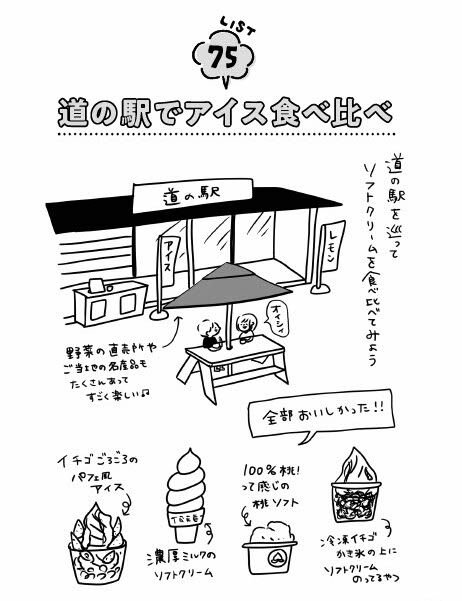 LIST
75
道の駅でアイス食べ比べ
道の駅を巡って
ソフトクリームを食べ比べてみよう
道の駅
アイス
レモン
オイシイ
野菜の直売所や
ご当地の名産品も
たくさんあって
すごく楽しい♫
全部おいしかった!!
イチゴごろごろの
パフェ風
アイス
濃厚ミルクの
ソフトクリーム
100%桃!
って感じの
桃ソフト
冷凍イチゴ
かき氷の上に
ソフトクリーム
のってるやつ